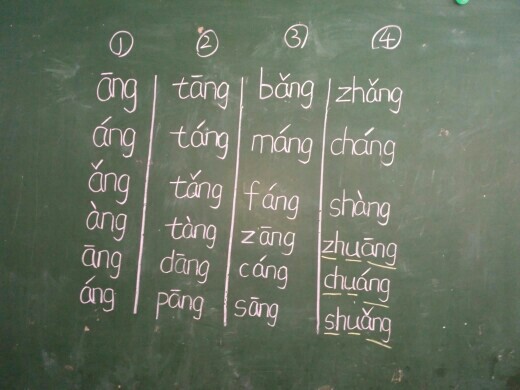 ① ② ③ ④
āng tāng bǎng zhǎng
áng táng máng cháng
ǎng tǎng fáng shàng
àng tàng zāng zhuāng
āng dāng cáng chuáng
áng pāng sāng shuǎng